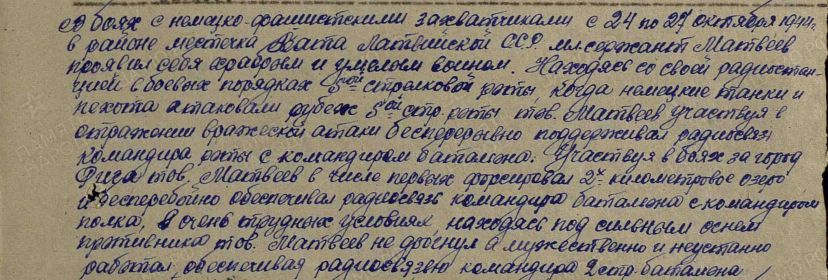 В боях с немецко-фашистскими захватчиками с 24 по 27 октября 1944 г.
в районе местечка Вата Латвийской ССР мл. сержант Матвеев
проявил себя храбрым и умелым воином. Находясь со своей радиостан-
цией в боевых порядках 5ой стрелковой роты, когда немецкие танки и
пехота атаковали рубеж 5ой стр. роты тов. Матвеев участвуя в
отражении вражеской атаки беспрерывно поддерживал радиосвязь
командира роты с командиром баталена. Участвуя в боях за город
Рига тов. Матвеев в числе первых форсировал 2х километровое озеро
и бесперебойно обеспечивал радиосвязь командира баталена с командиром
полка, в очень трудных условиях, находясь под сильным огнем
противника тов. Матвеев не дрогнул а мужественно и неустанно
работал, обеспечивая радиосвязью командира 2 стр. баталена